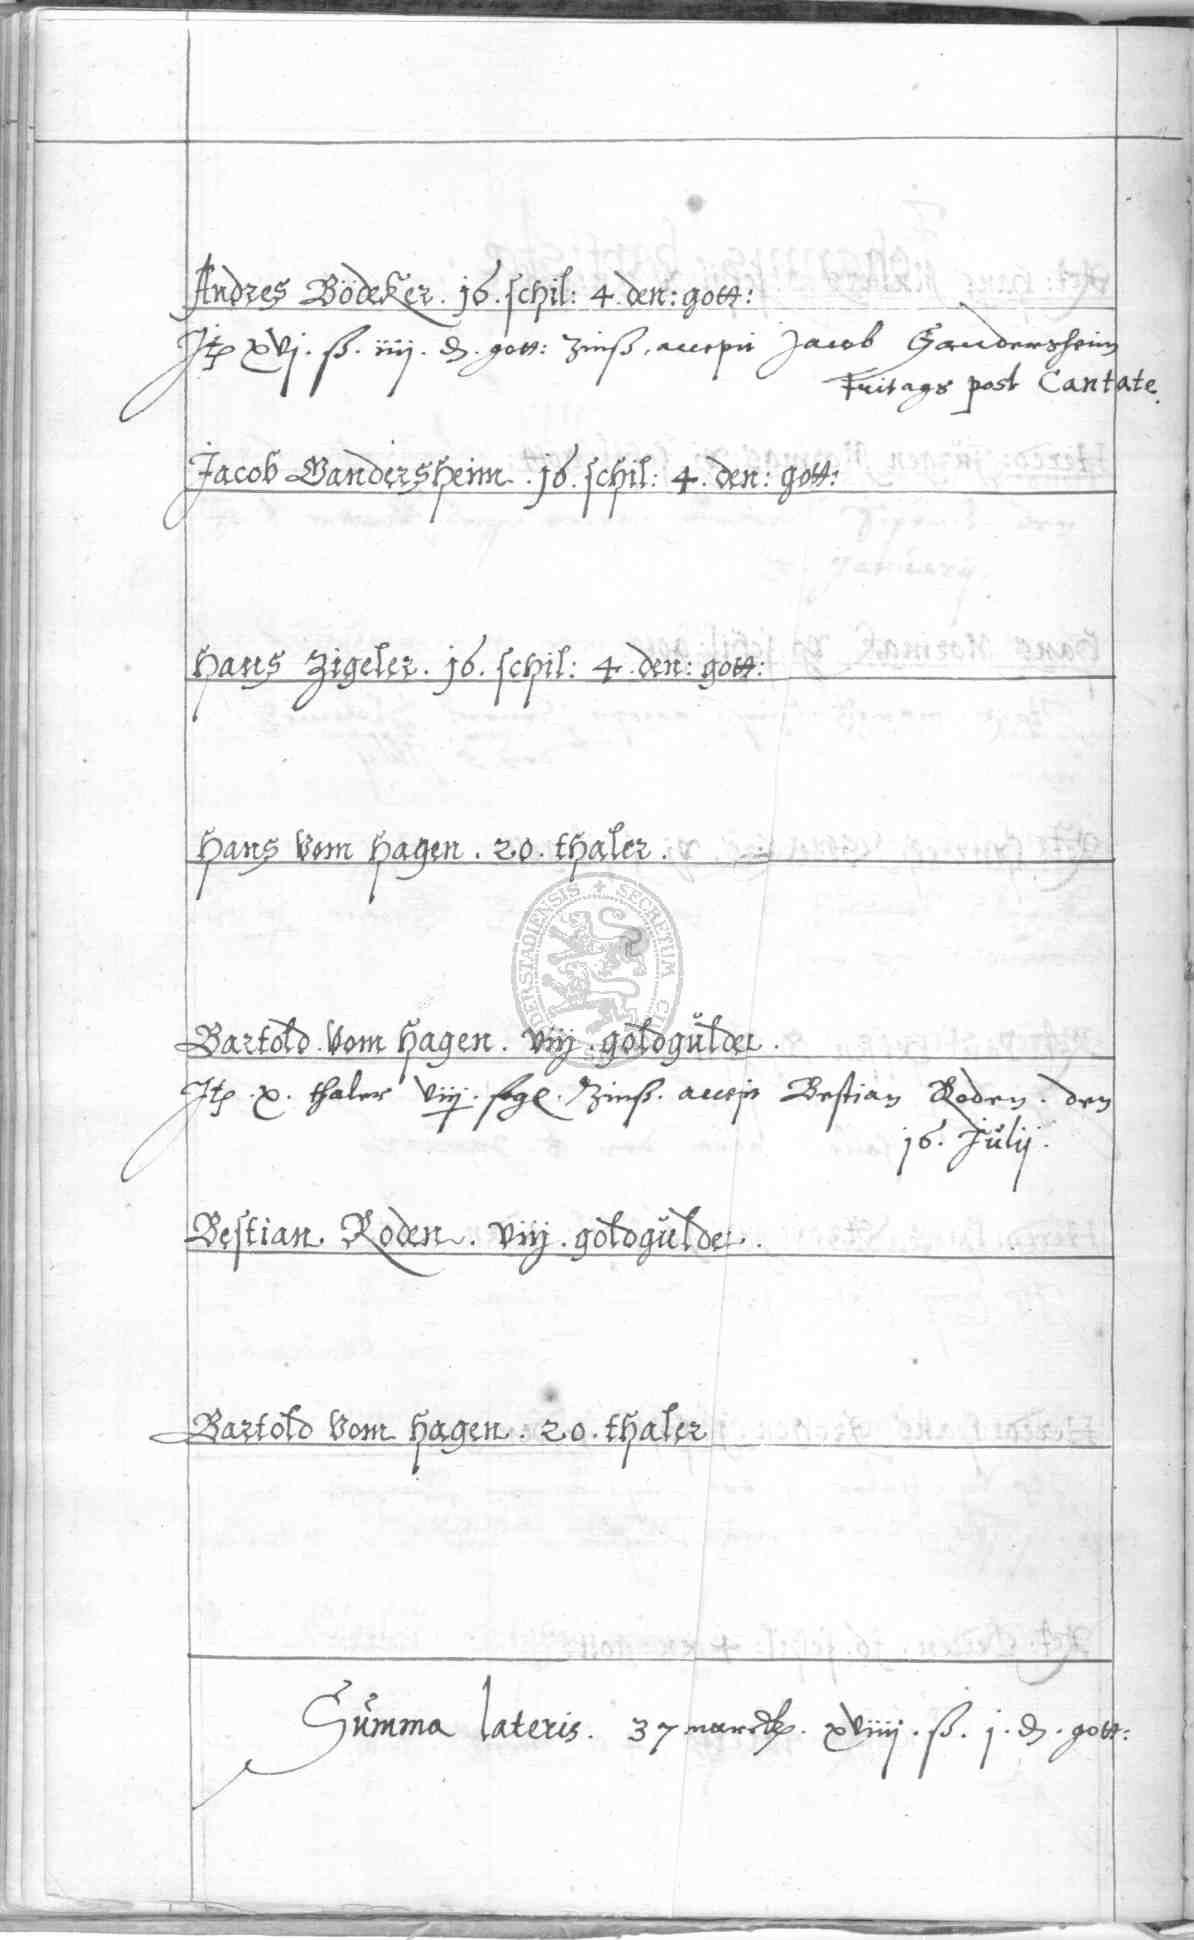 Andres Bödeker. 16. schil: 4. den: gott:
Jtp xvj. ß. iiij. d. gott: Zinß, accepit Jacob Gandersheim
Fritags post Cantate.
Jacob Gandersheim. 16. schil: 4. den: gott:
Hans Zigeler. 16. schil: 4. den: gott:
Hans Vom Hagen. 20. thaler.
DERSTADIENSIS + SECRETUM CI
Bartold Vom Hagen. viij. goldgŭlden.
Jtp. x. thaler viij. Zinß. accepit Bestian Roden. den
16. Jŭlij.
Bestian Roden. viij. goldgŭlden.
Bartold Vom Hagen. 20. thaler
Sŭmma lateris. 37 marck. xviiij. ß. j. d. gott: